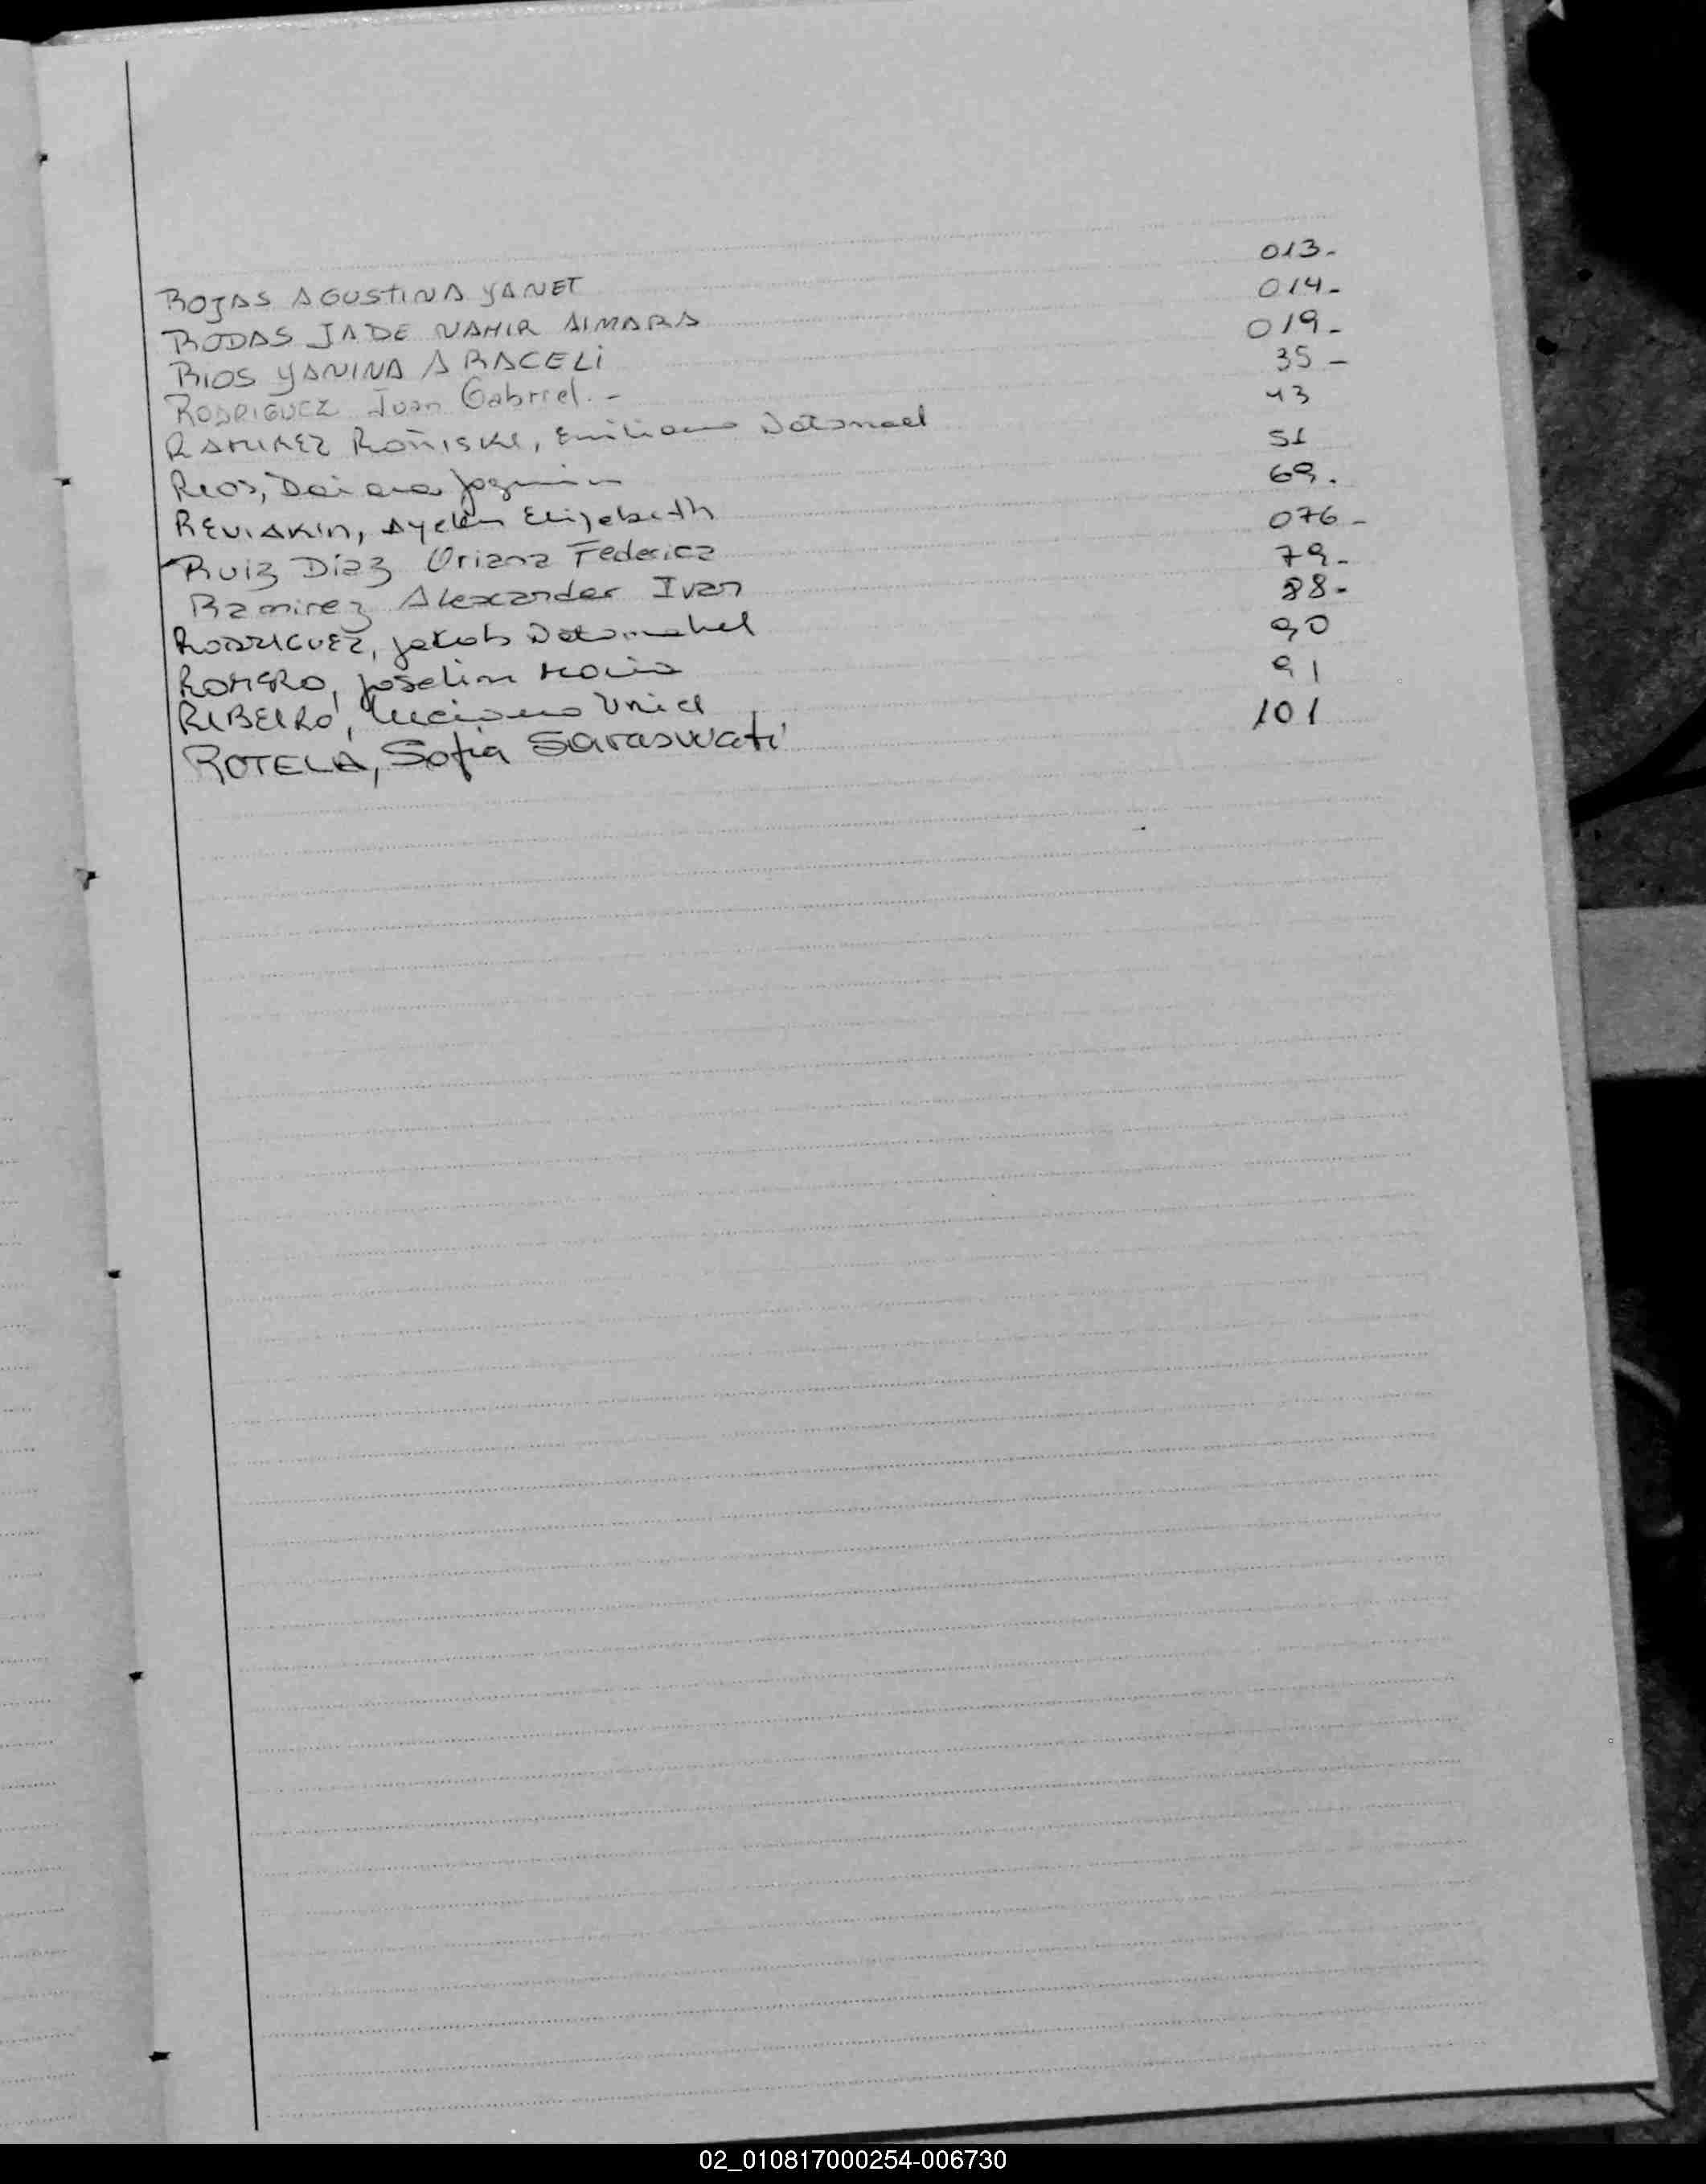 ROJAS AGUSTINA YANET 013-
RODAS JADE NAHIR AIMARA 014-
RIOS YANINA ARACELI 019-
RODRIGUEZ Juan Gabriel.- 35-
RAMIREZ ROÑISKI, Emiliano 43
RIOS, Daiana Jazmin 51
REVIAKIN, Ayelen Elizabeth 69.
Ruiz Díaz Oriana Federica 076-
Ramirez Alexander Ivan 79-
RODRIGUEZ, Jakob 88-
ROMERO, Joselin 90
RIBEIRO, Uriel 91
ROTELA, Sofia Saraswati 101
02_010817000254-006730